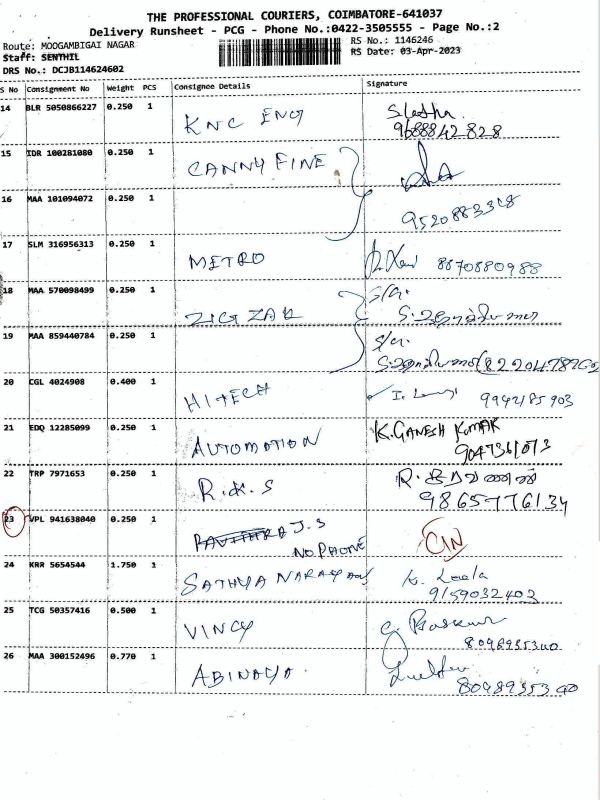 THE PROFESSIONAL COURIERS, COIMBATORE-641037
Delivery Runsheet - PCG - Phone No.:0422-3505555 - Page No.:2
Route: MOOGAMBIGAI NAGAR
RS No.: 1146246
Staff: SENTHIL
RS Date: 03-Apr-2023
DRS No.: DCJB114624602
S No Consignment No Weight PCS Consignee Details Signature
14 BLR 5050866227 0.250 1 KNC ENG
9688842828
15 IDR 100281080 0.250 1 CANNY FINE
16 MAA 101094072 0.250 1
9520883318
17 SLM 316956313 0.250 1 METRO 8870880988
18 MAA 570098499 0.250 1 ZIG ZAK S/a.
19 MAA 859440784 0.250 1 S/a.
20 CGL 4024908 0.400 1 HITECH 9942185903
21 EDQ 12285099 0.250 1 AUTOMATION K.GANESH KUMAR
9047361073
22 TRP 7971653 0.250 1 R.K.S R. சரவணன்
9865776134
23 VPL 941638040 0.250 1 J.S
NO PHONE CIN
24 KRR 5654544 1.750 1 SATHYA NARAYAN K. Leela
9159032403
25 TCG 50357416 0.500 1 VINCY G. Baskar
8098935340
26 MAA 300152496 0.770 1 ABINAYA
8098935340